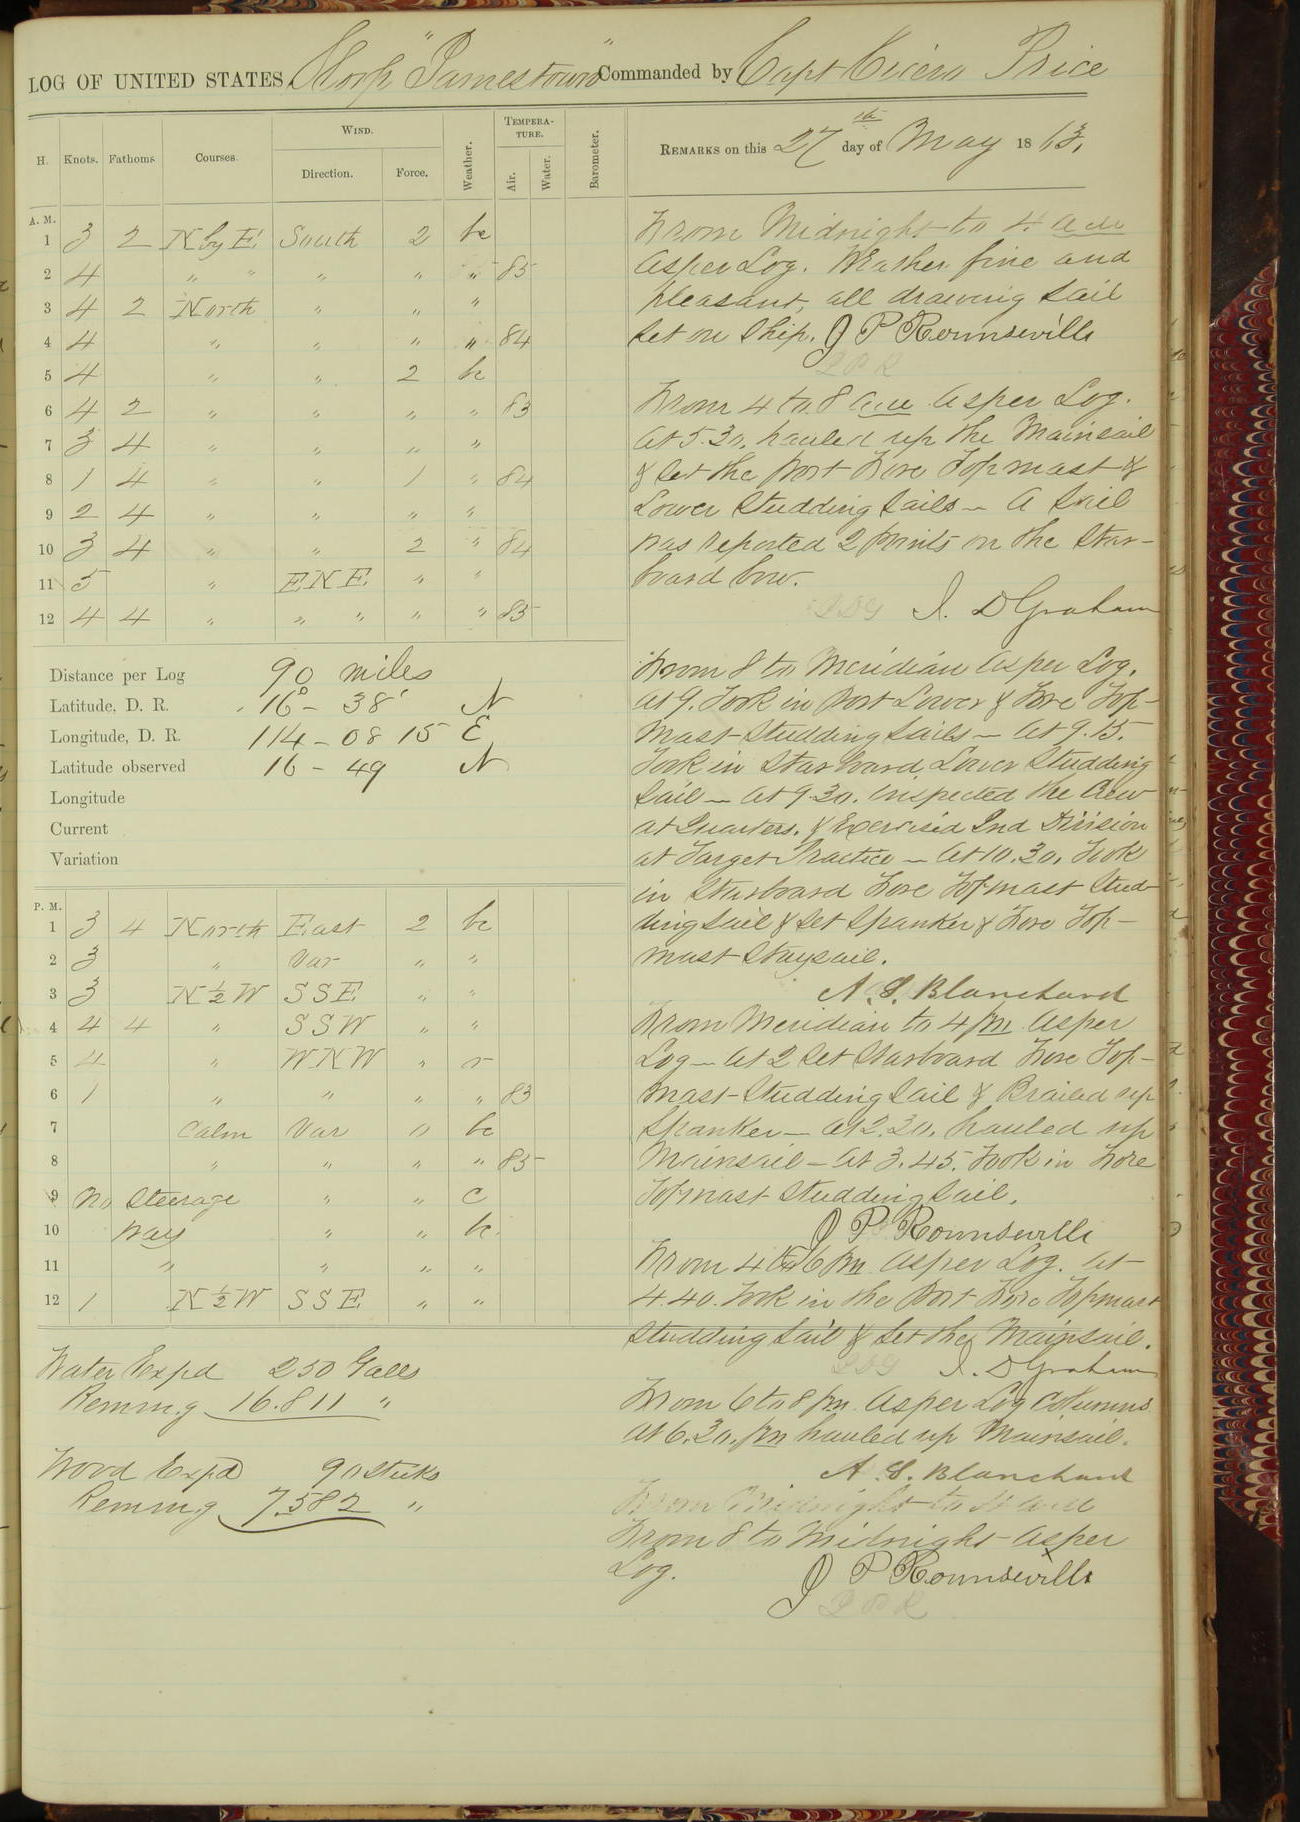 LOG OF UNITED STATES Sloop "Jamestown" Commanded by Capt Cicero Price
H. Knots. Fathoms Courses. WIND. Direction. Force. Weather. TEMPERATURE. Air. Water. Barometer. REMARKS on this 27th day of May 1863.
A. M.
1 3 2 N by E. South 2 bc
2 4 " " " " " 85
3 4 2 North " " "
4 4 " " " " 84
5 4 " " 2 bc
6 4 2 " " " " 83
7 3 4 " " " "
8 1 4 " " 1 " 84
9 2 4 " " " "
10 3 4 " " 2 " 84
11 5 " E N E. " "
12 4 4 " " " " " 85
Distance per Log 90 miles
Latitude, D. R. 16° - 38' N
Longitude, D. R. 114 - 08 15 E
Latitude observed 16 - 49 N
Longitude
Current
Variation
P. M.
1 3 4 North East 2 bc
2 3 " Var " "
3 3 N ½ W S S E. " "
4 4 4 " S S W " "
5 4 " W N W " r
6 1 " " " " 83
7 Calm Var 0 bc
8 " " " " 85
9 No Steerage " " c
10 way " " bc.
11 " " " "
12 1 N ½ W S S E. " "
Water Expd 250 Galls
Reming 16.811 "
Wood Expd 90 sticks
Reming 7.582 "
From Midnight to 4 a m
As per Log. Weather fine and
pleasant, all drawing sail
set on Ship. J P Rounsevills
J P R
From 4 to 8 a m As per Log.
At 5.30. hauled up the Mainsail
& Set the Port Fore Topmast &
Lower Studding Sails - A Sail
was reported 2 points on the Star-
board bow.
J D G J. D Graham
From 8 to Meridian As per Log.
At 9. Took in Port Lower & Fore Top-
Mast Studding Sails - At 9.15.
Took in Starboard Lower Studding
Sail - At 9.30. Inspected the Crew
at Quarters. & Exercised 2nd Division
at Target Practice - At 10.30. Took
in Starboard Fore Topmast Stud-
ding Sail & Set Spanker & Fore Top-
mast Staysail.
A. S. Blanchard
From Meridian to 4 pm As per
Log - At 2 Set Starboard Fore Top-
mast Studding Sail & Brailed up
Spanker - At 2.30. hauled up
Mainsail - At 3.45. Took in Fore
Topmast Studding Sail.
J P Rounsevills
From 4 to 6 pm As per Log. At
4.40. Took in the Port Fore Topmast
Studding Sail & Set the Mainsail.
J D G J. D Graham
From 6 to 8 pm As per Log Columns
At 6.30. pm hauled up Mainsail.
A. S. Blanchard
From Midnight to 4 a m
From 8 to Midnight As per
Log. J P Rounsevills
J P R